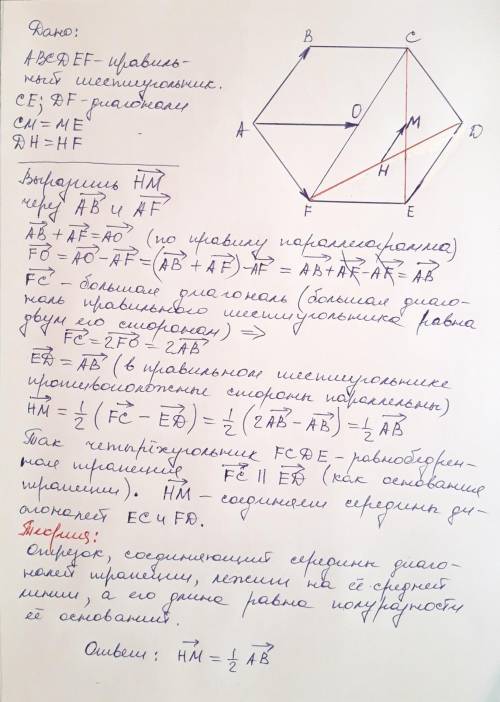 Дано:
ABCDEF - правиль-
ный шестиугольник.
CE; DF - диагонали
CM = ME
DH = HF
B
C
A
O
M
D
H
F
E
Выразить HM
через AB и AF
AB + AF = AO (по правилу параллелограмма)
FO = AO - AF = (AB + AF) - AF = AB + AF - AF = AB
FC - большая диагональ (большая диаго-
наль правильного шестиугольника равна
двум его сторонам) ⇒
FC = 2FO = 2AB
ED = AB (в правильном шестиугольнике
противоположные стороны параллельны)
HM = 1/2 (FC - ED) = 1/2 (2AB - AB) = 1/2 AB
Так четырёхугольник FCDE - равнобедрен-
ная трапеция FC || ED (как основания
трапеции). HM - соединяет середины ди-
агоналей EC и FD.
Теория:
Отрезок, соединяющий середины диаго-
налей трапеции, лежит на её средней
линии, а его длина равна полуразности
её оснований.
Ответ: HM = 1/2 AB